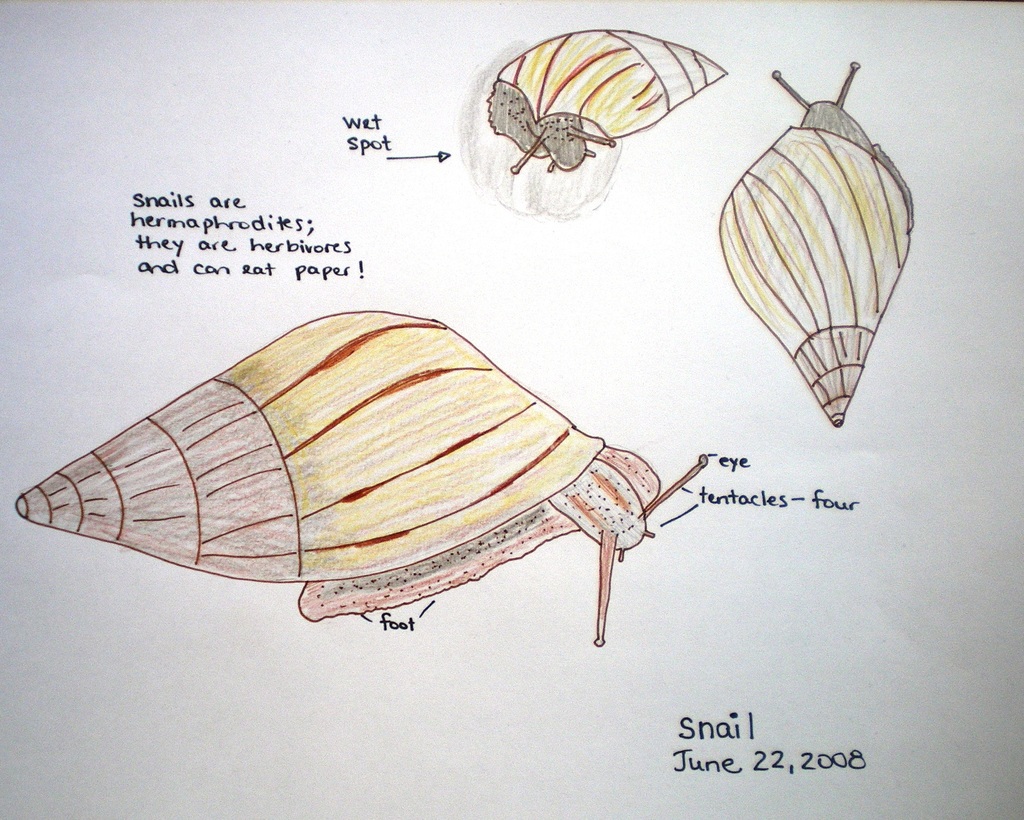 wet
spot
Snails are
hermaphrodites;
they are herbivores
and can eat paper!
eye
tentacles - four
foot
Snail
June 22, 2008